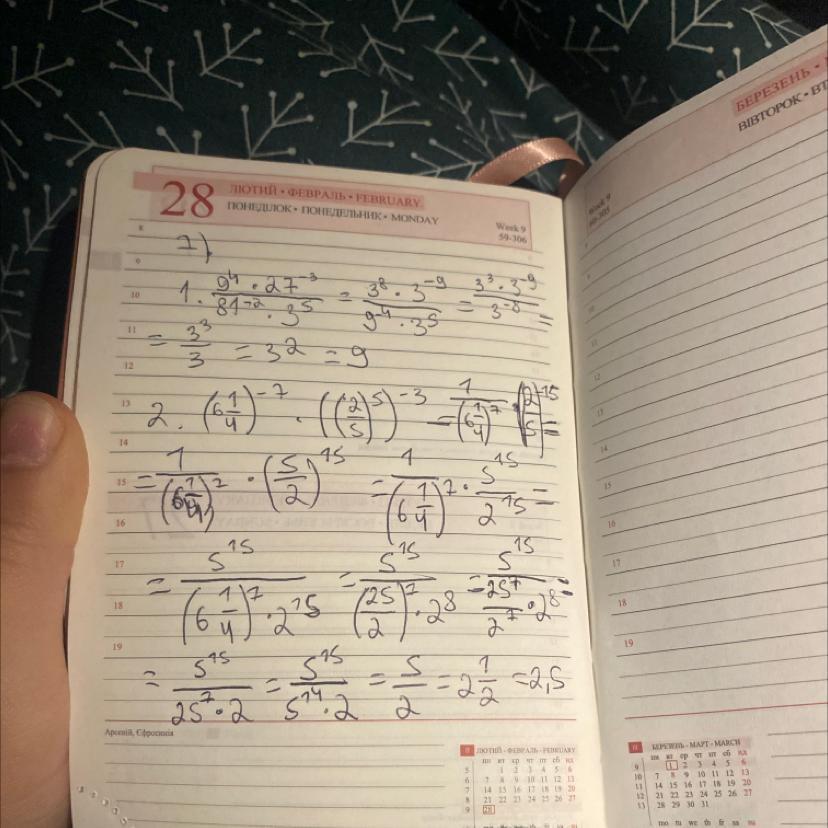 28
ЛЮТИЙ • ФЕВРАЛЬ • FEBRUARY
ПОНЕДІЛОК • ПОНЕДЕЛЬНИК • MONDAY
Week 9
59-306
8
7).
9
10
1. (9^4 · 27^-3)/(81^-2 · 3^5) = (3^8 · 3^-9)/(9^-4 · 3^5) = (3^3 · 3^-9)/(3^-8) =
11
= 3^3/3 = 3^2 = 9
12
13
2. (6 1/4)^-7 · ((2/5)^5)^-3 = 1/(6 1/4)^7 · (2/5)^-15 =
14
15
= 1/(6 1/4)^7 · (5/2)^15 = 1/(6 1/4)^7 · 5^15/2^15 =
16
17
= 5^15/((6 1/4)^7 · 2^15) = 5^15/((25/2)^7 · 2^8) = 5^15/(25^7/2^7 · 2^8) =
18
19
= 5^15/(25^7 · 2) = 5^15/(5^14 · 2) = 5/2 = 2 1/2 = 2,5
Арсеній, Єфросинія
II ЛЮТИЙ - ФЕВРАЛЬ - FEBRUARY
пн вт ср чт пт сб нд
5 1 2 3 4 5 6
6 7 8 9 10 11 12 13
7 14 15 16 17 18 19 20
8 21 22 23 24 25 26 27
9 28
БЕРЕЗЕНЬ •
ВІВТОРОК • ВТ
Week 9
60-305
8
9
10
11
12
13
14
15
16
17
18
19
III БЕРЕЗЕНЬ - МАРТ - MARCH
пн вт ср чт пт сб нд
9 1 2 3 4 5 6
10 7 8 9 10 11 12 13
11 14 15 16 17 18 19 20
12 21 22 23 24 25 26 27
13 28 29 30 31
mo tu we th fr sa su